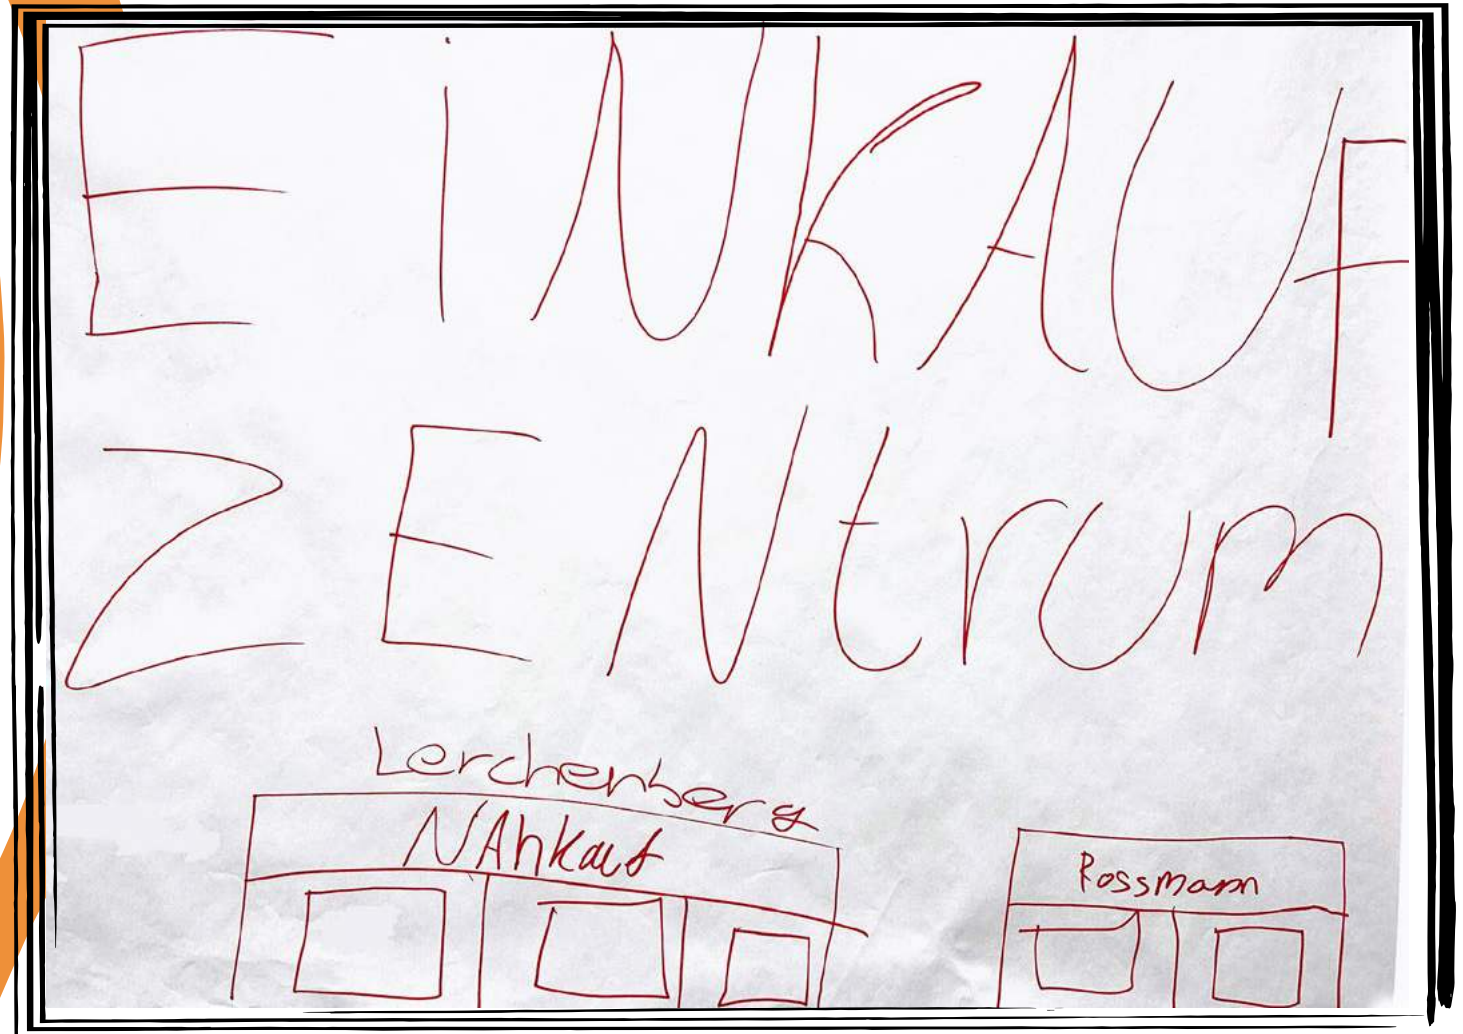 EiNKAUF
ZENtrum
Lerchenberg
NAhKauf
Rossmann